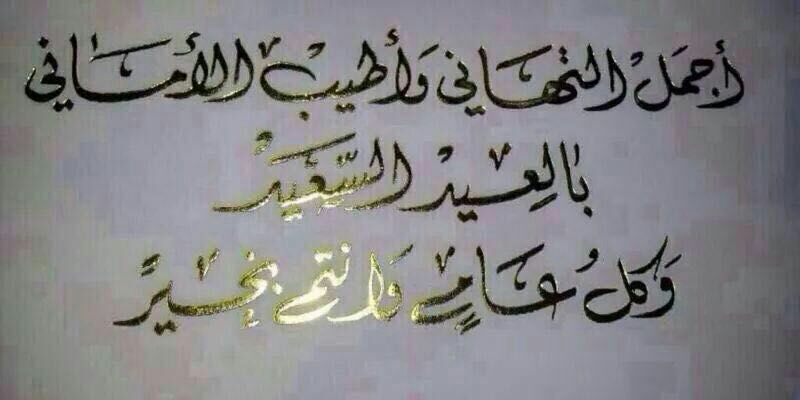 أجمَل التهَاني وَأطيب الأمَاني
بالعِيد السَّعِيدْ
وَكلُ عَامٍ وَانتم بخَيرً